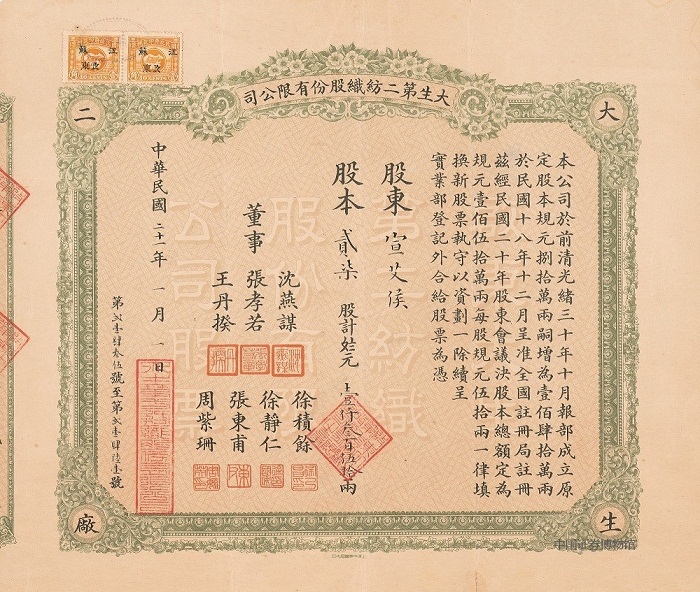 江蘇
改東
江蘇
改東
大生第二紡織股份有限公司
大
生
二
廠
本公司於前清光緒三十年十月報部成立原
定股本規元捌拾萬兩嗣增為壹佰肆拾萬兩
於民國十八年十二月呈准全國註冊局註冊
茲經民國二十年股東會議決股本總額定為
規元壹佰伍拾萬兩每股規元伍拾兩一律填
換新股票執守以資劃一除續呈
實業部登記外合給股票為憑
股東 宣艾侯
股本 貳柒 股計規元 壹仟叁百伍拾兩
董事
沈燕謀
張孝若
王丹揆
徐積餘
徐靜仁
張東甫
周紫珊
中華民國二十一年一月一日
第貳壹肆叁伍號至第貳壹肆陸壹號
中国证券博物馆